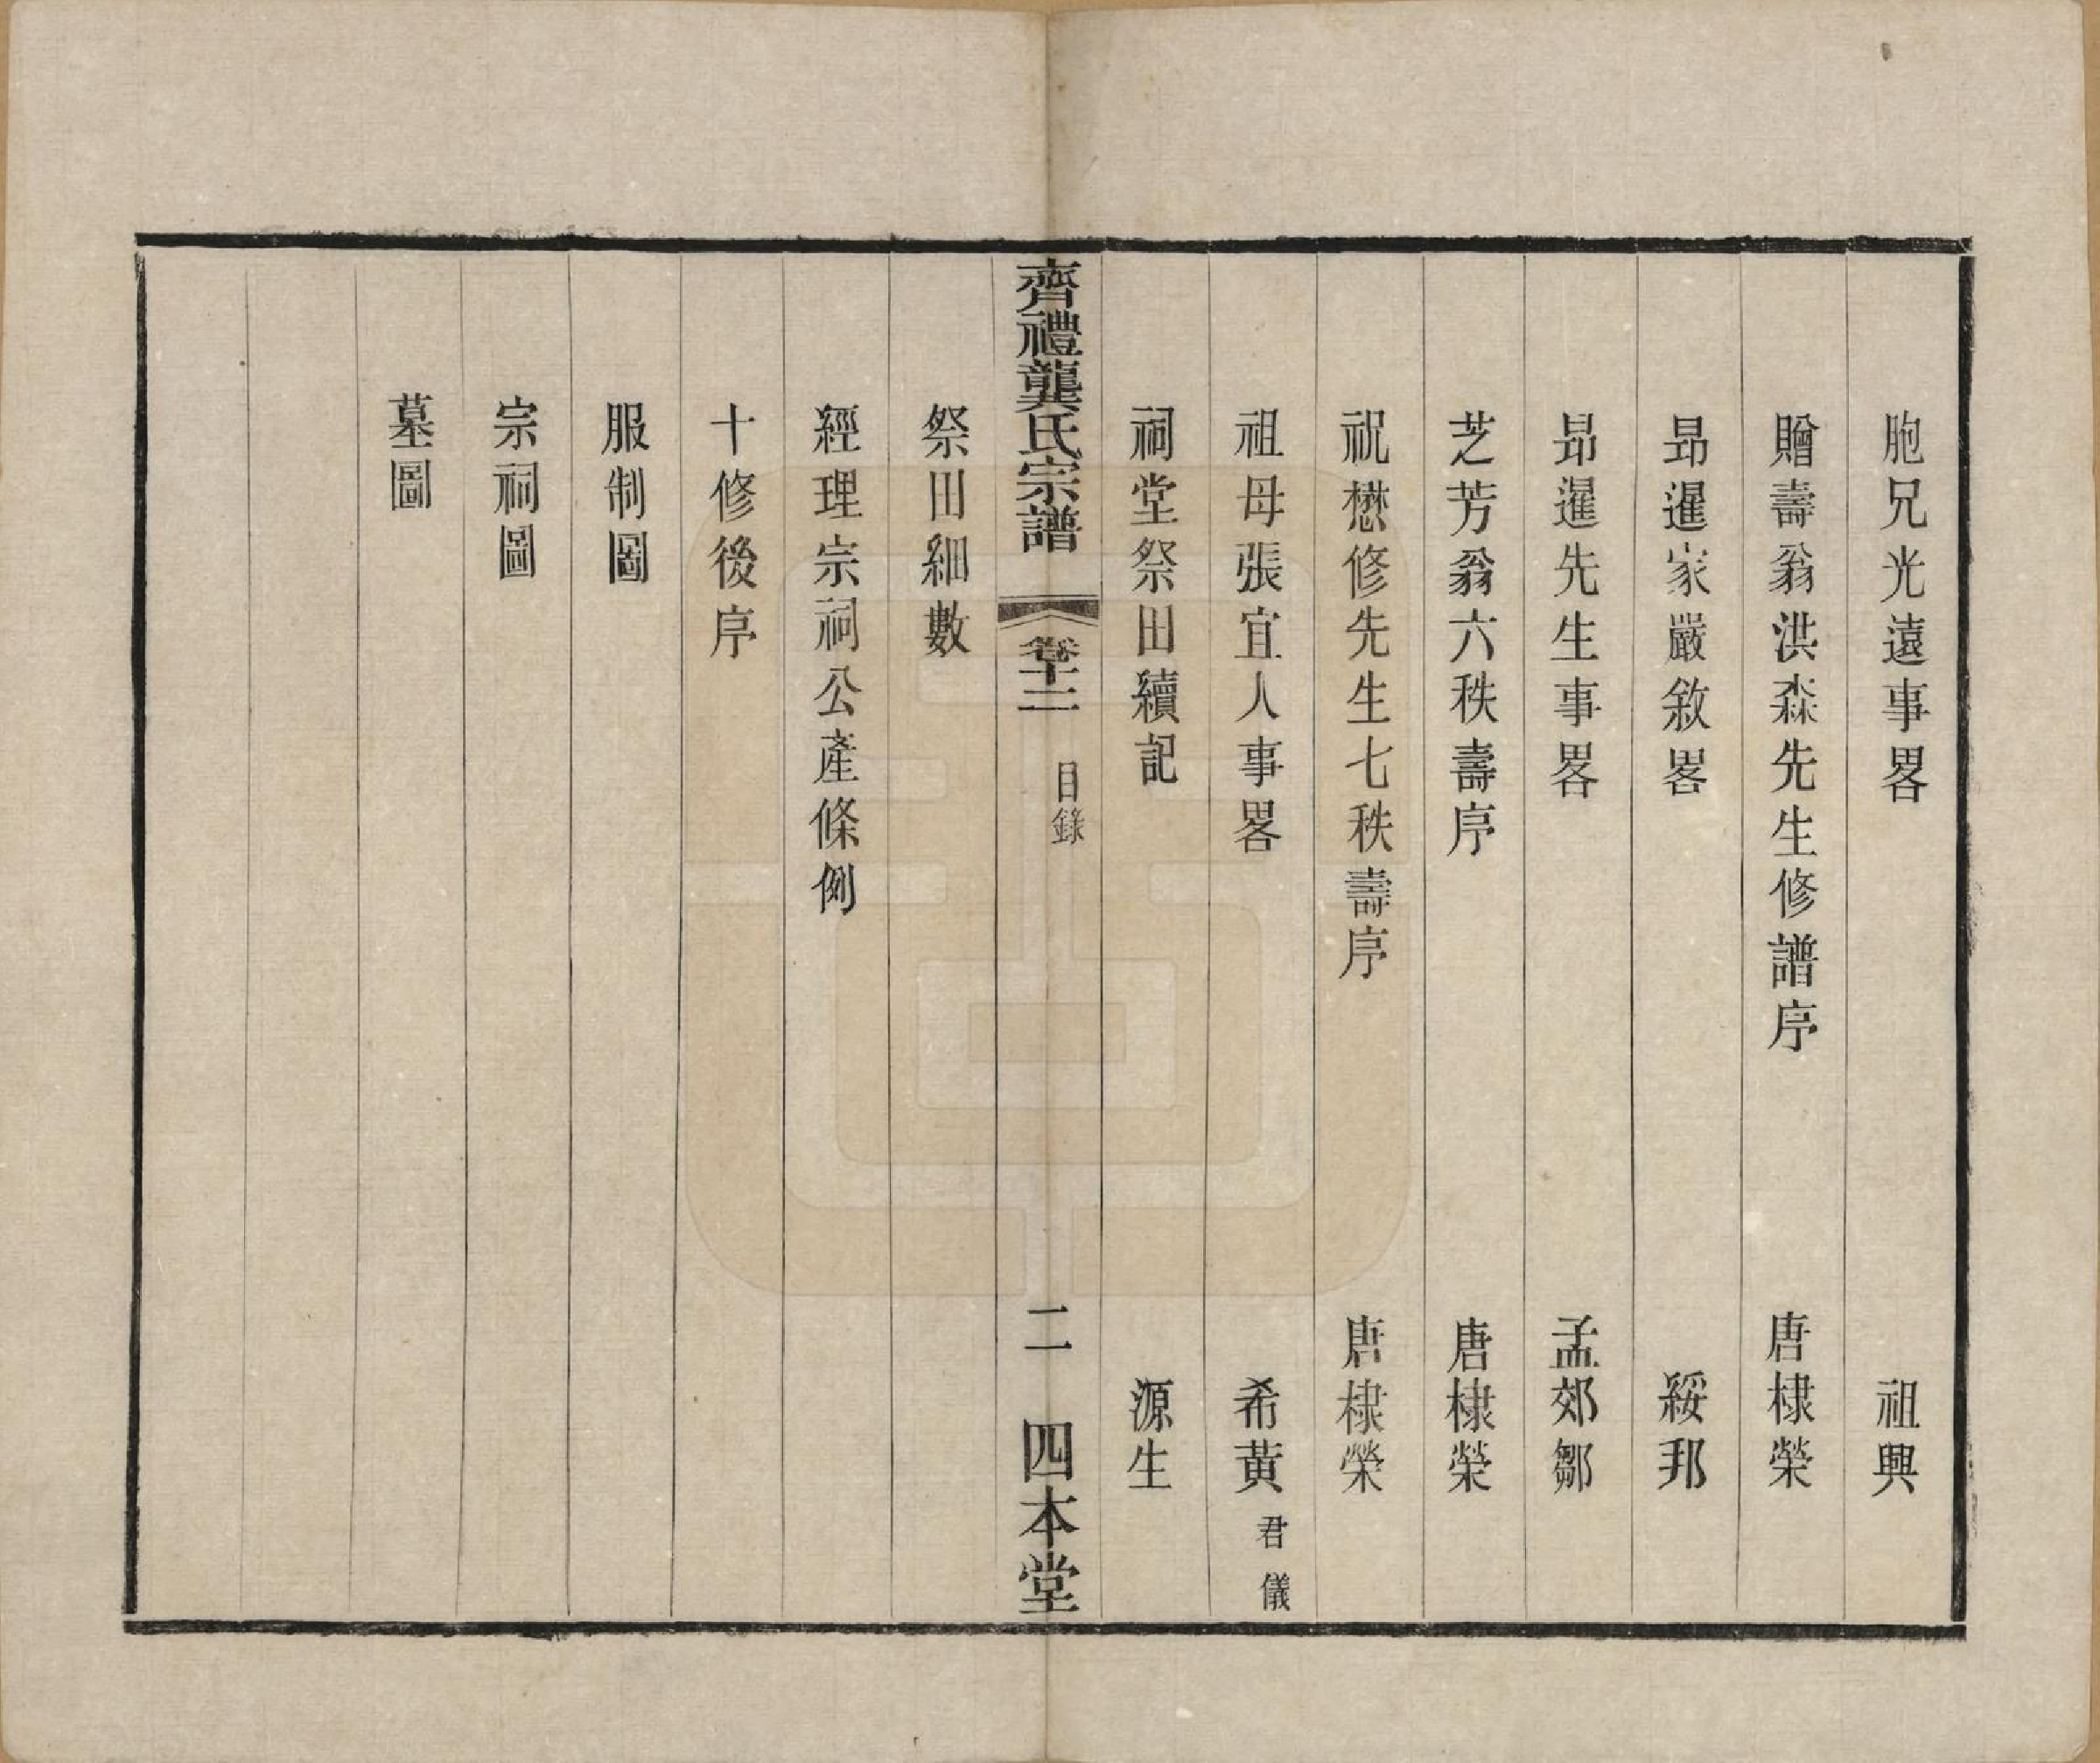 胞兄光遠事畧 祖興
贈壽翁洪森先生修譜序 唐棣榮
昂暹家嚴敘畧 綏邦
昂暹先生事畧 孟郊鄒
芝芳翁六秩壽序 唐棣榮
祝懋修先生七秩壽序 唐棣榮
祖母張宜人事畧 希黃 君儀
祠堂祭田續記 源生
齊禮龔氏宗譜 卷十二 目錄 二 四本堂
祭田細數
經理宗祠公產條例
十修後序
服制圖
宗祠圖
墓圖